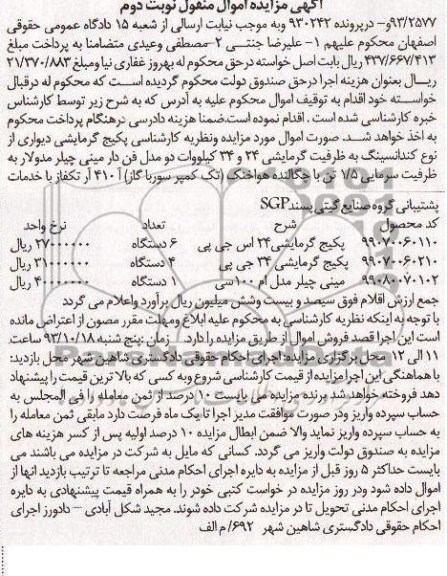 آگهی مزایده اموال منقول نوبت دوم
۹۳/۲۵۷۷و- درپرونده ۹۳۰۲۴۲ وبه موجب نیابت ارسالی از شعبه ۱۵ دادگاه عمومی حقوقی
اصفهان محکوم علیهم ۱- علیرضا جنتی ۲-مصطفی وعیدی متضامنا به پرداخت مبلغ
۴۳۷/۶۶۷/۴۱۳ ریال بابت اصل خواسته درحق محکوم له بهروز غفاری نیا ومبلغ ۲۱/۳۷۰/۸۸۳
ریال بعنوان هزینه اجرا درحق صندوق دولت محکوم گردیده است که محکوم له درقبال
خواسته خود اقدام به توقیف اموال محکوم علیه به آدرس که به شرح زیر توسط کارشناس
خبره کارشناسی شده است . اقدام نموده است.ضمنا هزینه دادرسی درهنگام پرداخت محکوم
به اخذ خواهد شد. صورت اموال مورد مزایده ونظریه کارشناسی پکیج گرمایشی دیواری از
نوع کندانسینگ به ظرفیت گرمایشی ۲۴ و ۳۴ کیلووات دو مدل فن دار مینی چیلر مدولار به
ظرفیت سرمایی ۱/۵ تن با چگالنده هواخنک (تک کمپرسورباگاز) آ ۴۱۰ آر تکفاز با خدمات
پشتیبانی گروه صنایع گیتی پسند SGP
کد محصول شرح تعداد نرخ واحد
۹۹۰۷۰۰۶۰۱۱۰ پکیج گرمایشی۲۴ اس جی پی ۶ دستگاه ۲۷۰۰۰۰۰۰ ریال
۹۹۰۷۰۰۶۰۲۱۰ پکیج گرمایشی ۳۴ جی پی ۴ دستگاه ۳۱۰۰۰۰۰۰ ریال
۹۹۰۸۰۰۷۰۱۰۲ مینی چیلر مدل ام ۱۰۰سی ۱ دستگاه ۴۰۰۰۰۰۰۰ ریال
جمع ارزش اقلام فوق سیصد و بیست وشش میلیون ریال برآورد واعلام می گردد
با توجه به اینکه نظریه کارشناسی به محکوم علیه ابلاغ ومهلت مقرر مصون از اعتراض مانده
است این اجرا قصد فروش اموال از طریق مزایده را دارد. زمان: پنج شنبه ۹۳/۱۰/۱۸ ساعت
۱۱ الی ۱۲ محل برگزاری مزایده: اجرای احکام حقوقی دادگستری شاهین شهر محل بازدید:
با هماهنگی این اجرا مزایده از قیمت کارشناسی شروع وبه کسی که بالاترین قیمت را پیشنهاد
دهد فروخته خواهد شد برنده مزایده می بایست ۱۰ درصد از ثمن معامله را فی المجلس به
حساب سپرده واریز ودر صورت موافقت مدیر اجرا تا یک ماه فرصت دارد مابقی ثمن معامله را
به حساب سپرده واریز نماید والا ضمن ابطال مزایده ۱۰ درصد اولیه پس از کسر هزینه های
مزایده به صندوق دولت واریز می گردد. کسانی که مایل به شرکت در مزایده می باشند می
بایست حداکثر ۵ روز قبل از مزایده به دایره اجرای احکام مدنی مراجعه تا ترتیب بازدید انها از
اموال داده شود ودر روز مزایده در خواست کتبی خودر را به همراه قیمت پیشنهادی به دایره
اجرای احکام مدنی تحویل تا در مزایده شرکت داده شوند. مجید شکل آبادی – دادورز اجرای
احکام حقوقی دادگستری شاهین شهر ۶۹۲/ م الف